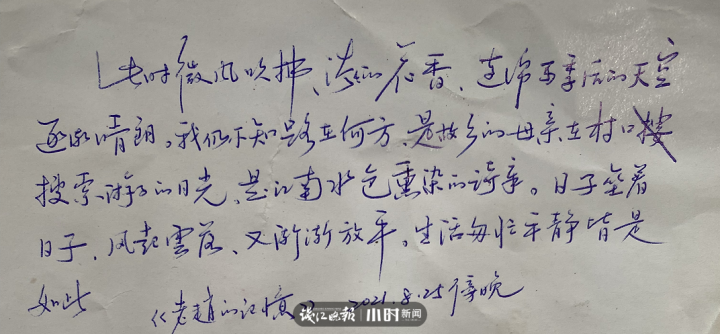 此时微风吹拂、淡淡花香、连绵雨季后的天空
逐渐晴朗。我仍不知路在何方、是故乡的母亲在村口
搜索游子的目光、是江南水色熏染的诗章。日子垒着
日子、风起雲落、又渐渐放平。生活匆忙平静皆是
如此 《老趙的记憶》 2021.8.25 傍晚
钱江晚报 小时新闻